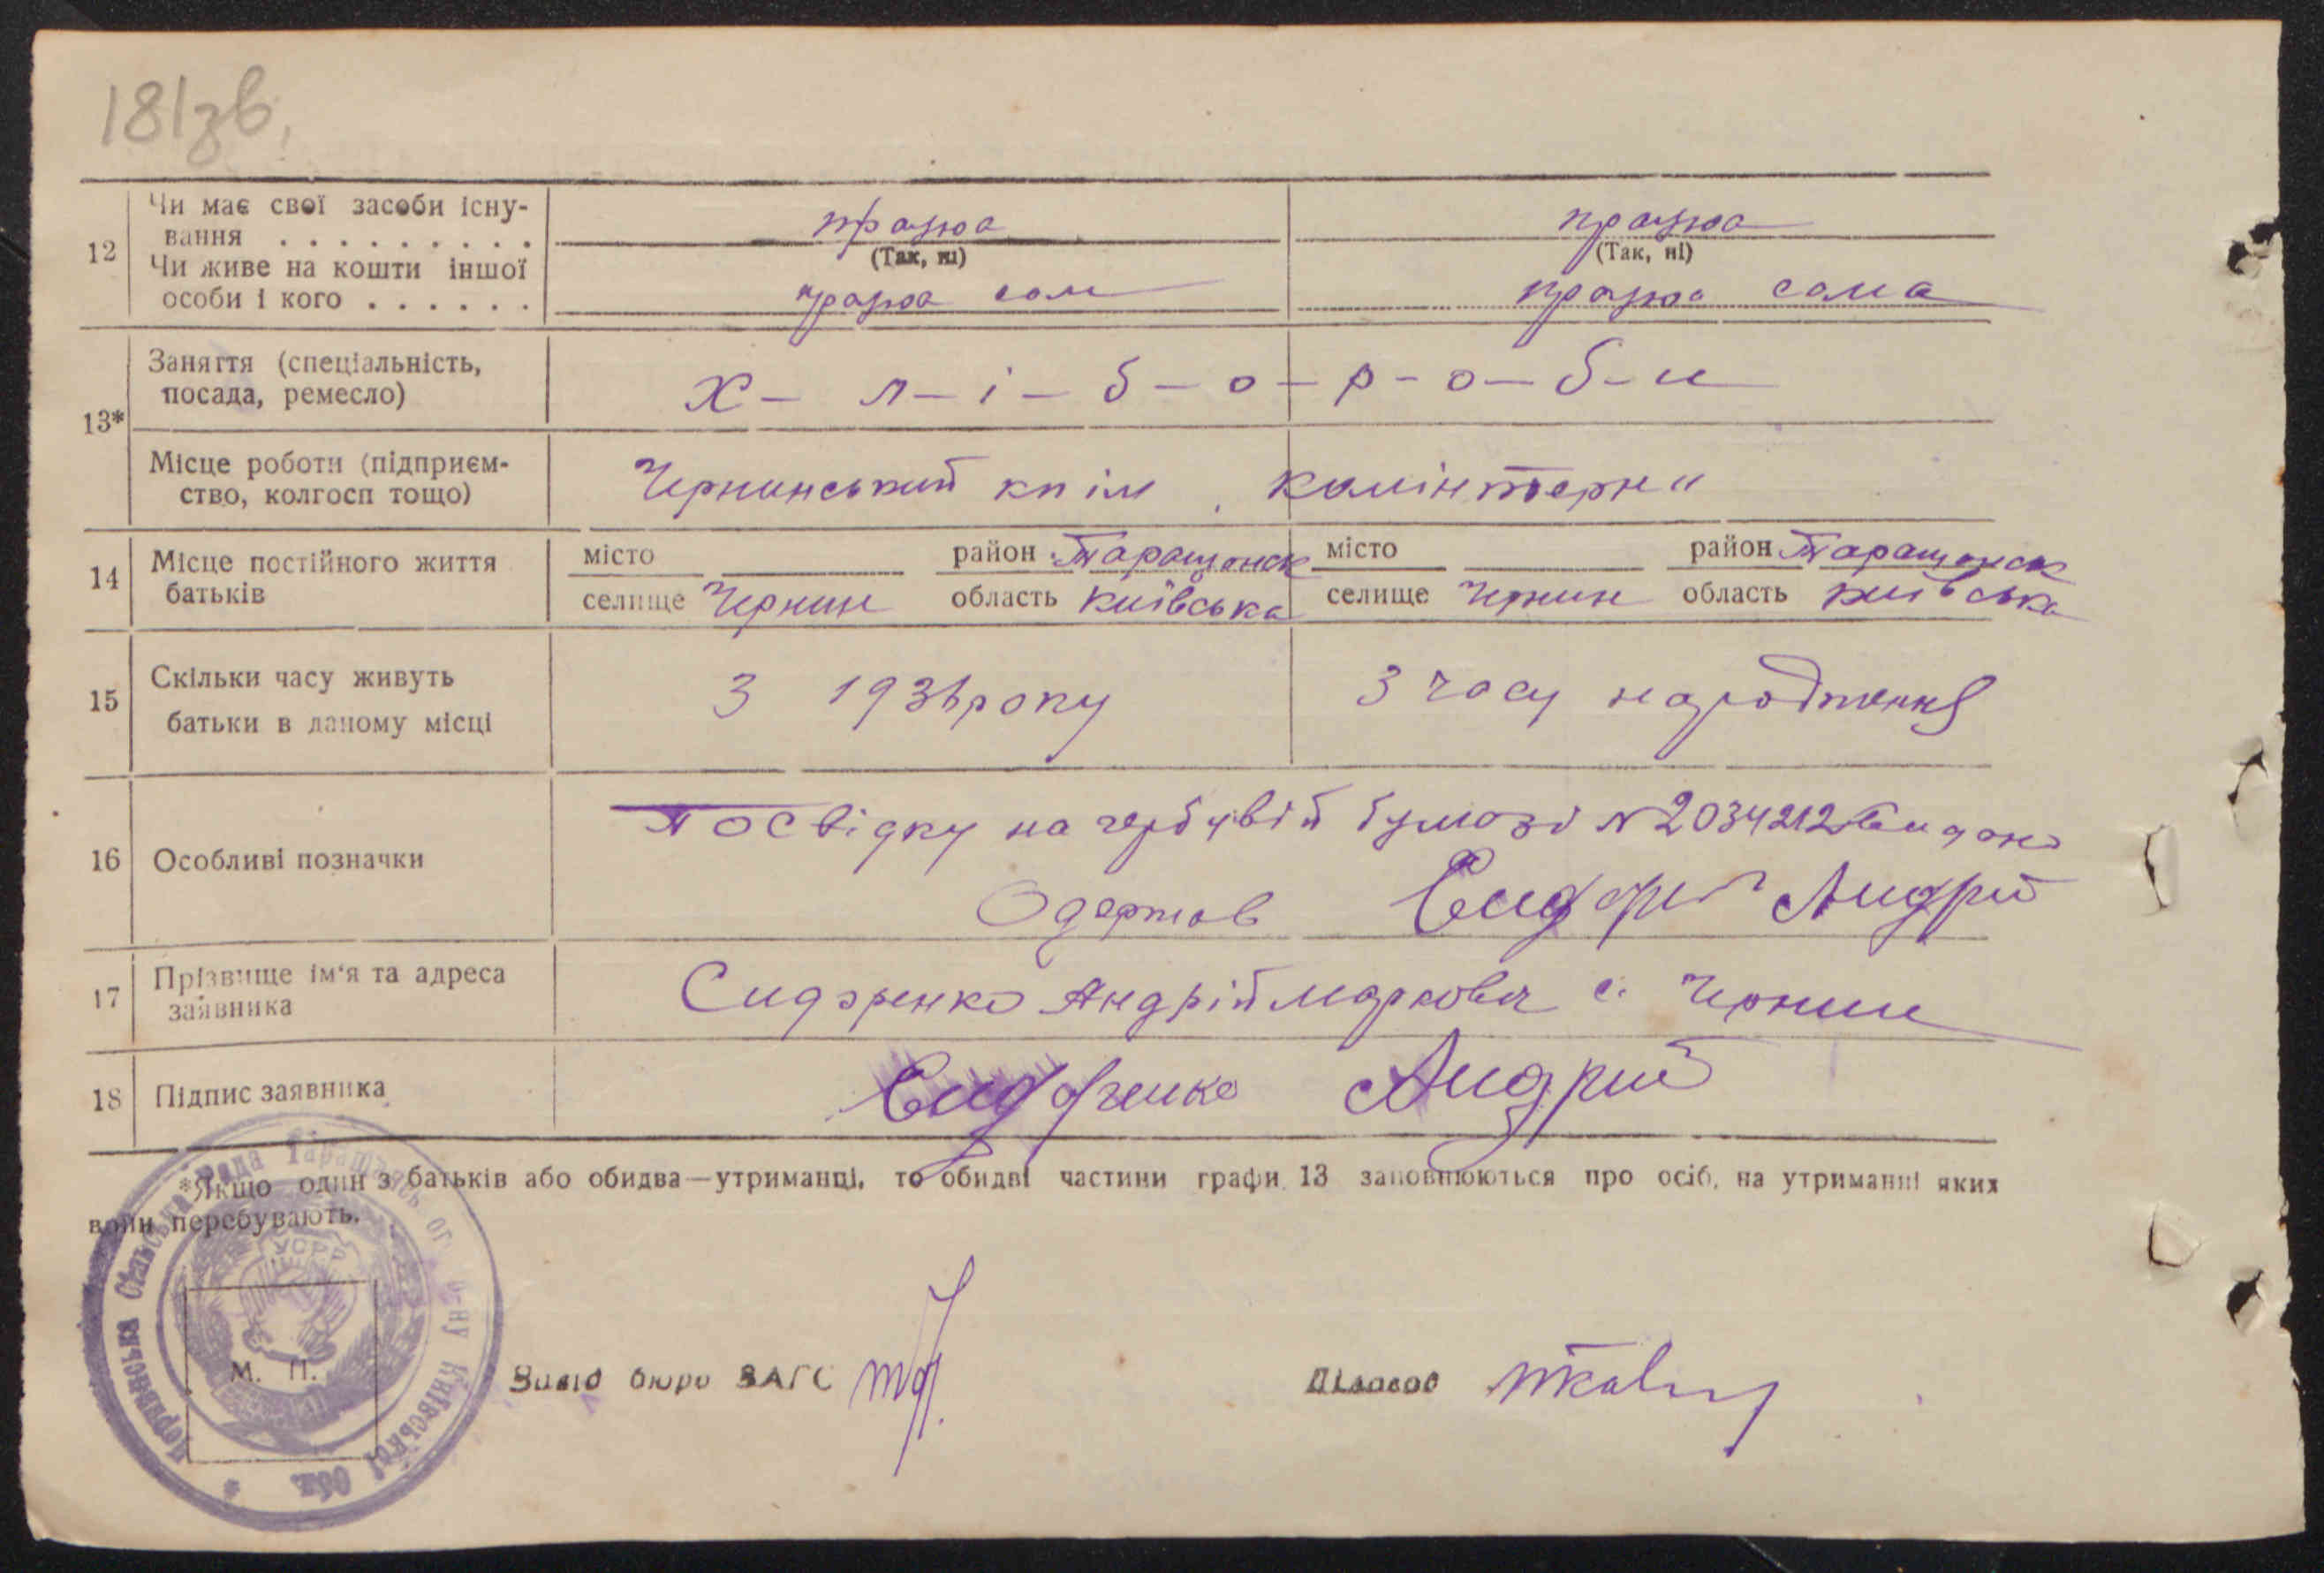 181зв.
12
Чи має свої засоби існу-
вання . . . . . . . . .
Чи живе на кошти іншої
особи і кого . . . . . .
працюа
(Так, ні)
працюа сам
працюа
(Так, ні)
працюа сама
13*
Заняття (спеціальність,
посада, ремесло)
Х – л – і – б – о – р – о – б – и
Місце роботи (підприєм-
ство, колгосп тощо)
Чернинський „Комінтерн"
14
Місце постійного життя
батьків
місто район Таращанск
селище Чернин область Київська
місто район Таращанск
селище Чернин область Київська
15
Скільки часу живуть
батьки в даному місці
З року
З часу народження
16
Особливі позначки
Посвідку на гербовій бумозі N 2034212 видано
Одержав Андрій
17
Прізвище ім'я та адреса
заявника
Сидоренко Андрій Маркович с. Чернин
18
Підпис заявника
Сидоренко Андрий
*Якщо один з батьків або обидва—утриманці, то обидві частини графи 13 заповнюються про осіб, на утриманні яких
вони перебувають.
УСРР
Сільська Рада Таращанськ Київської Обл.
М. П.
Завід бюро ЗАГС
Діловод